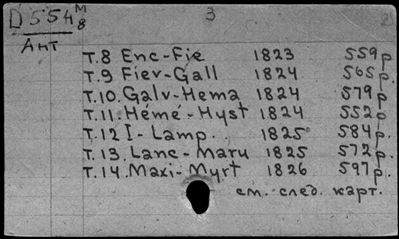 D 554 M/8 3
Ант
т.8 Enc-Fie 1823 559 р
т.9 Fiev-Gall 1824 565 р.
т.10. Galv-Hema 1824 579 р
т.11. Hémé-Hyst 1824 552 р
т.12 I-Lamp. 1825 584 р.
т.13. Lanc-Maru 1825 572 р.
т.14. Maxi-Myrt 1826 597 р.
см. след. карт.